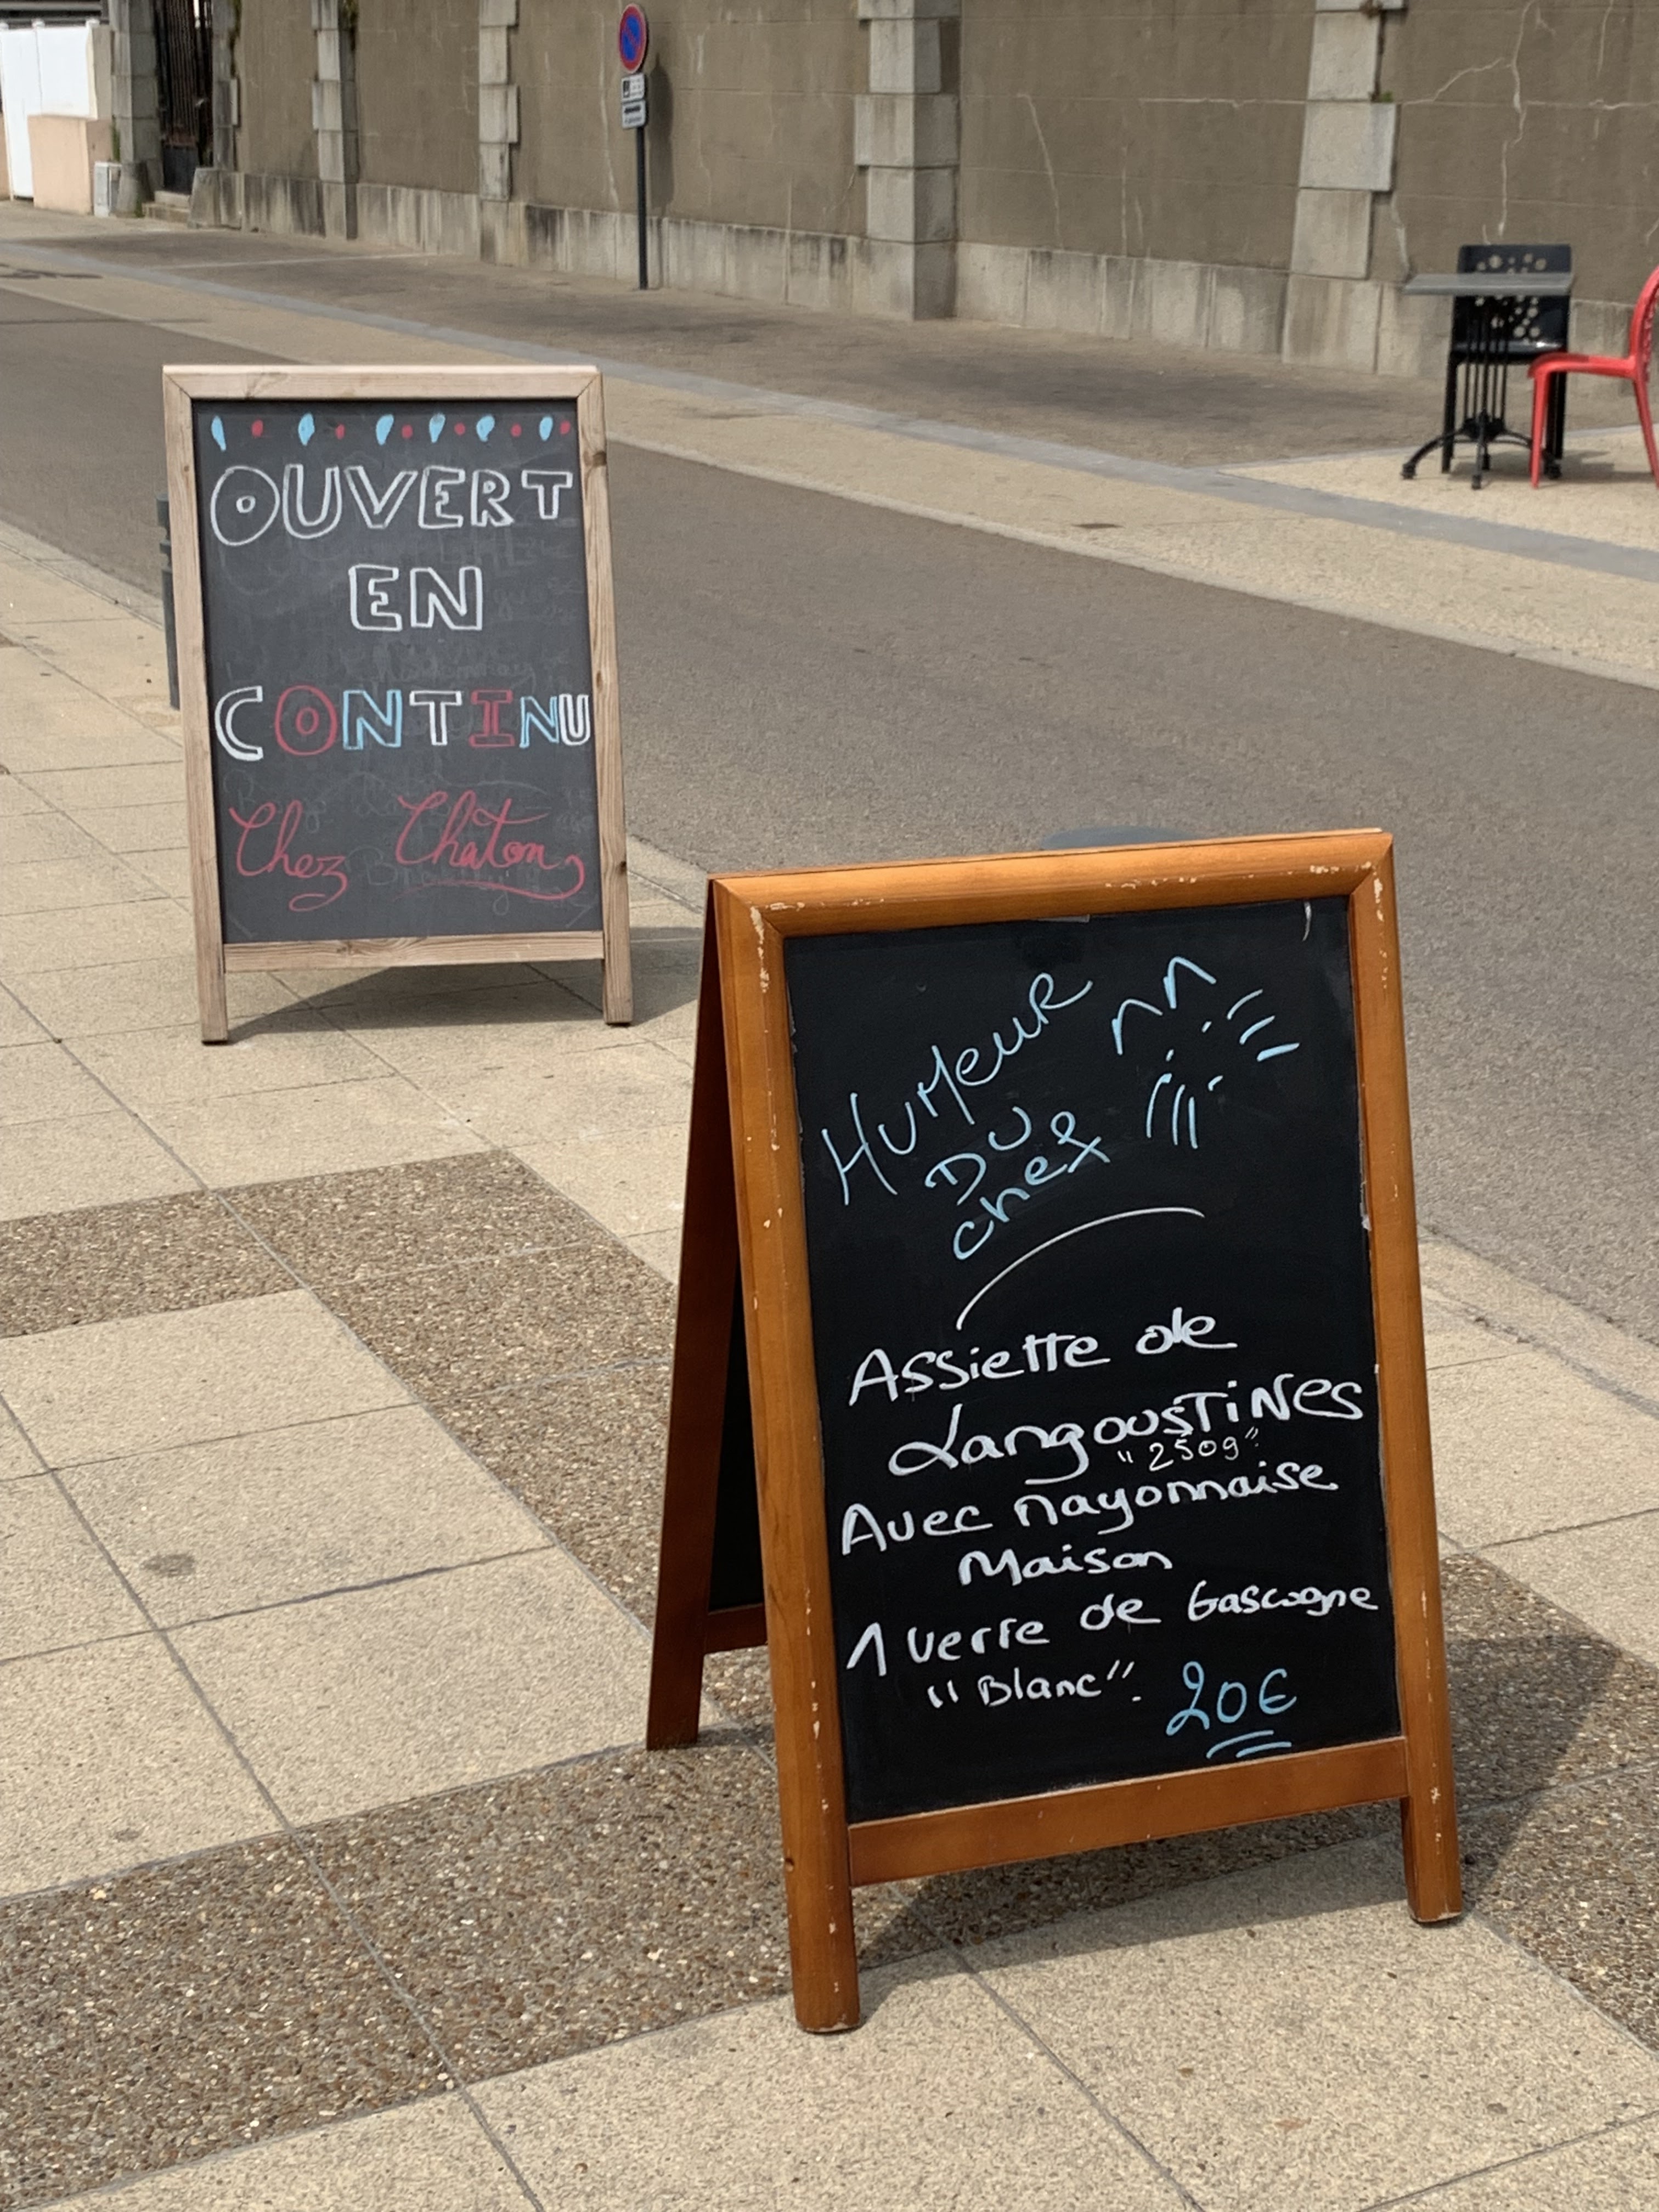 OUVERT
EN
CONTINU
Chez Chaton
HUMeuR
DU
chef
Assiette de
LangousTiNes
"250g"
Avec mayonnaise
Maison
1 verre de Gascogne
"Blanc".
20€